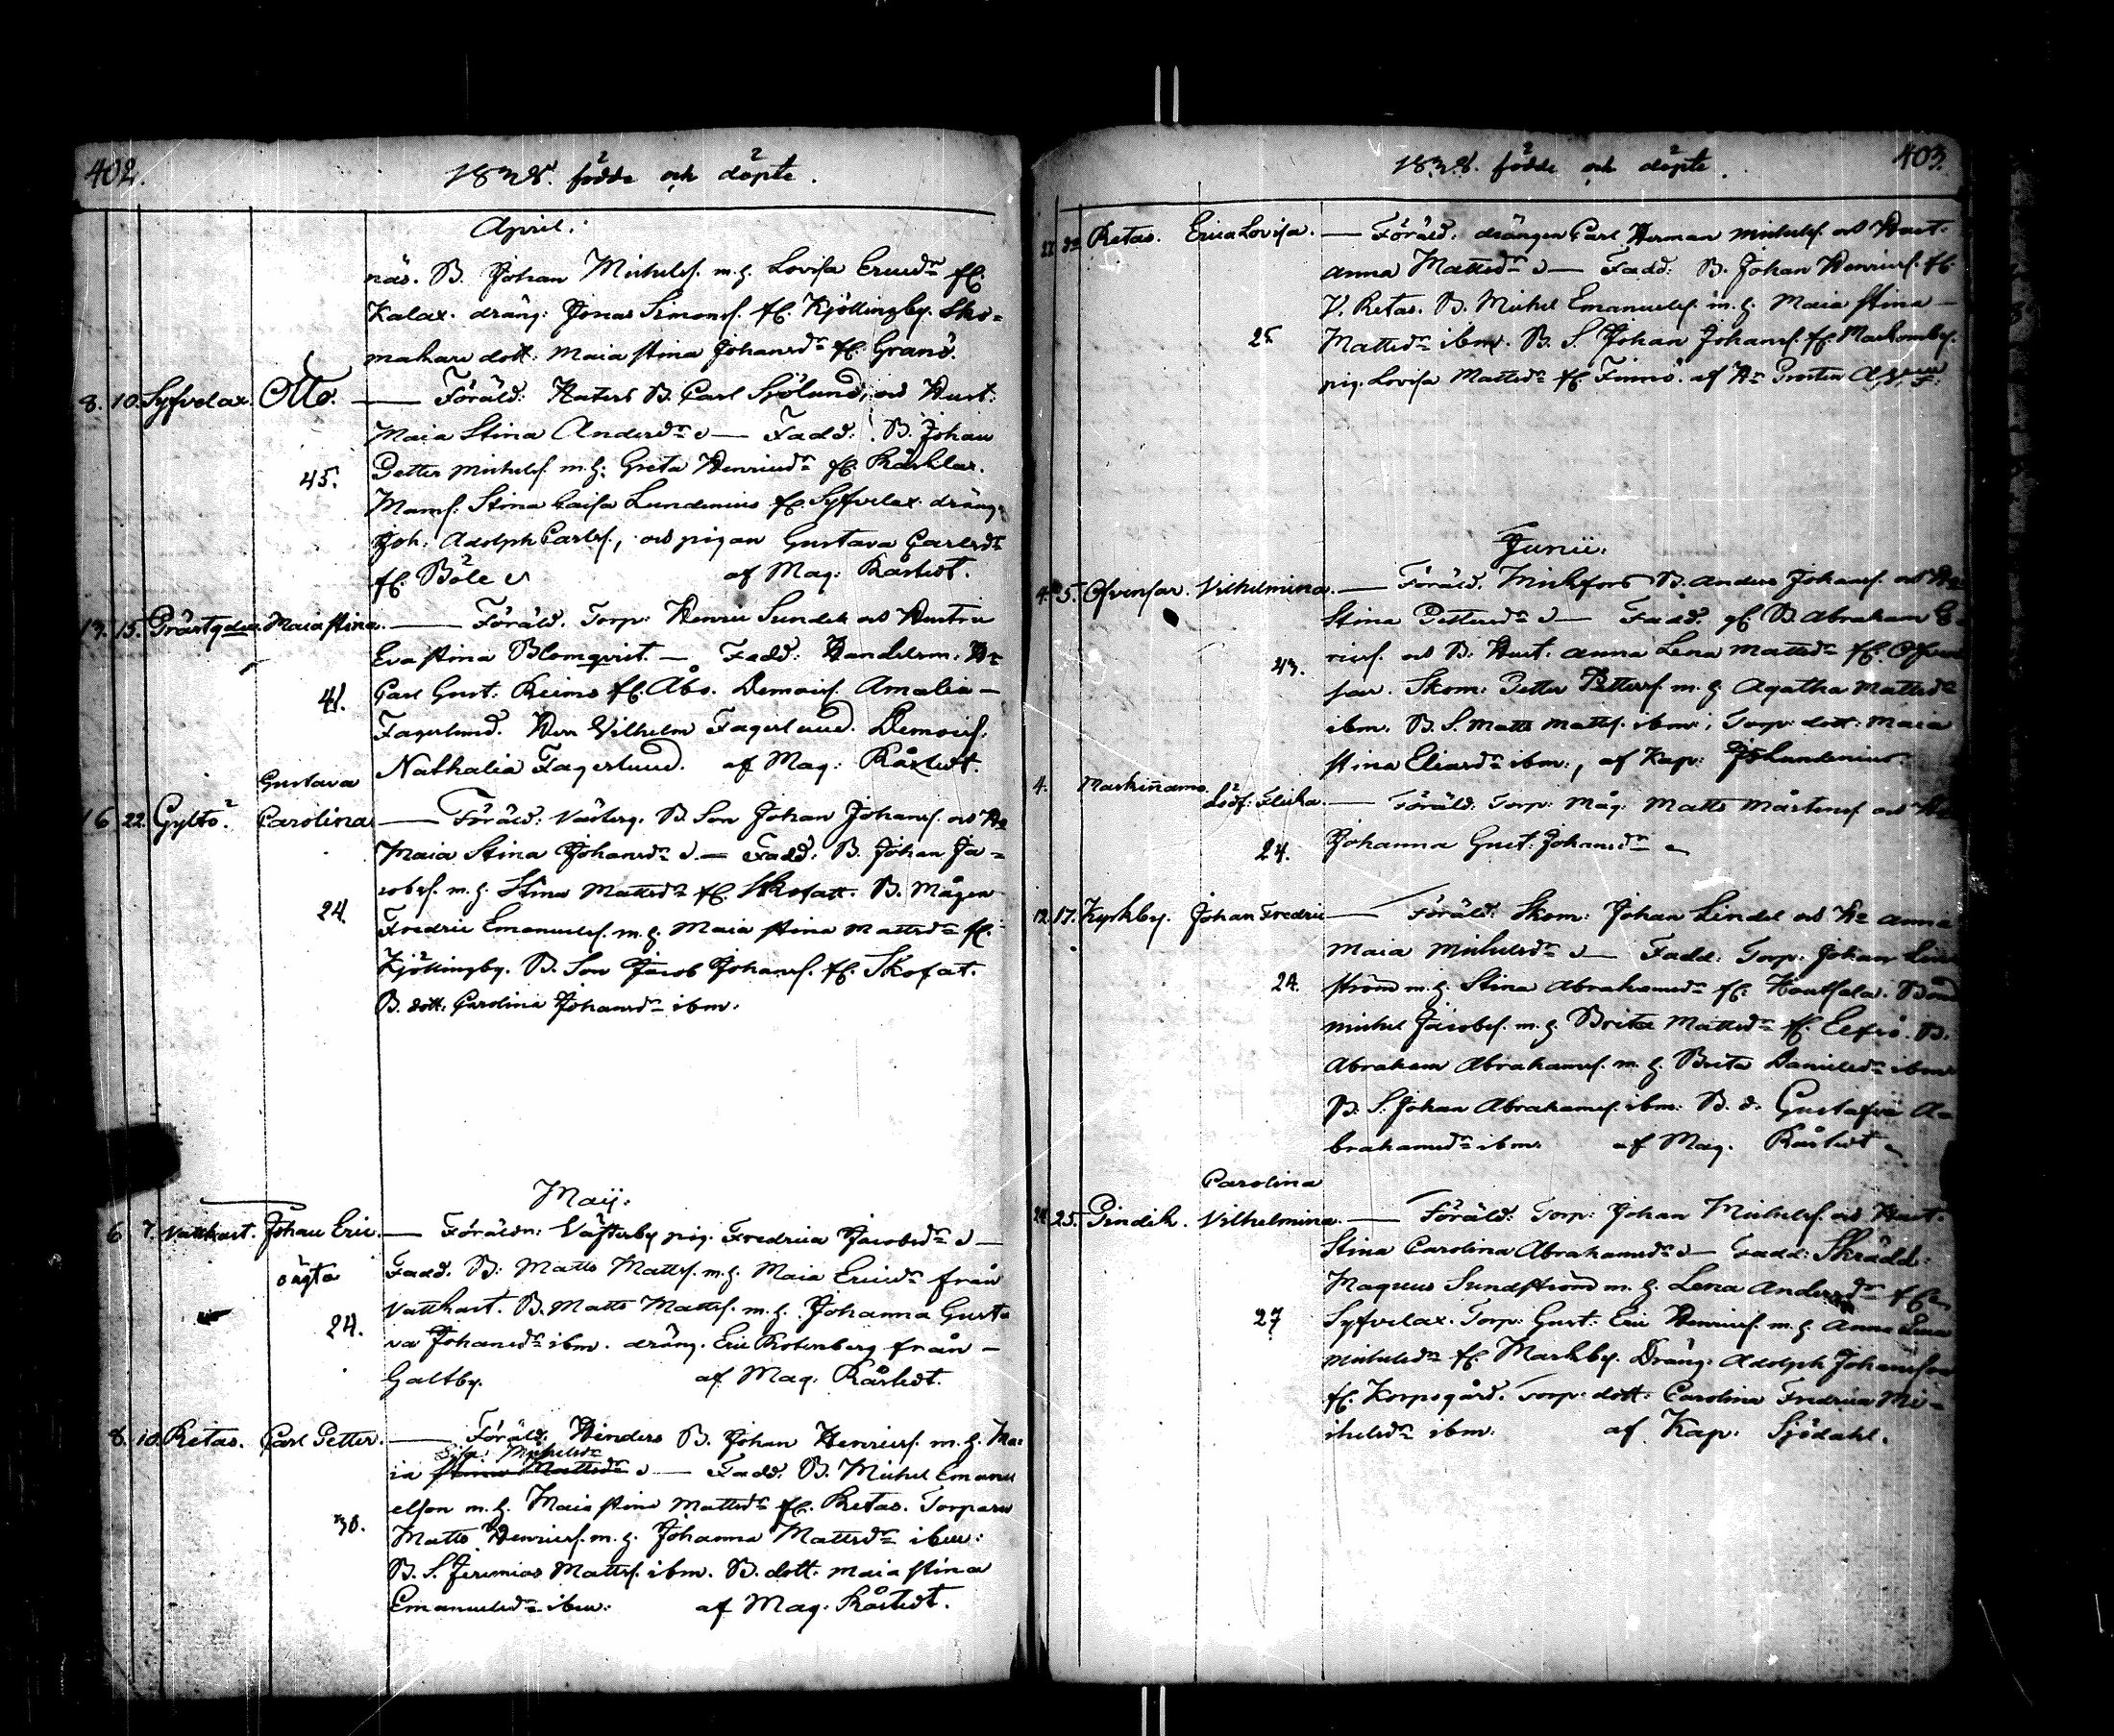 402.
1838. födde och döpte.
April.
näs. B. Johan Michelsf. m.h. Lovisa Ericsdr fl.
Kalax. dräng: Jonas Simonsf. fl. Kjöllingby. Sko-
makare dott: Maia Stina Johansdr fl. Granö.
8. 10. Syfvelax. Otto. — Föräld: B. Carl Sjölund, och Hust:
Maia Stina Andersdr — Fadd: B. Johan
Petter Michelsf. m.h. Greta Henricsdr fl.
45.
Mams: Stina Caisa Lundenius fl. Syfvelax. dräng
Joh: Adolph Carlsf, och pigan Gustava Carlsdr
fl. Böle af Mag: Råstedt.
13. 15. Prästgden. Maia Stina. — Föräld. Torp: Henric Sundel och Hustru
Eva Stina Blomqvist. — Fadd: Handelsm: Hr
41.
Carl Gust: Reims fl. Åbo. Demois. Amalia —
Fagerlund. Herr Vilhelm Fagerlund. Demois:
Nathalia Fagerlund. af Mag: Råstedt.
16. 22. Gyltö. Gustava
Carolina — Föräld: B. Son Johan Johansf. och Hu
Maia Stina Johansdr — Fadd: B. Johan Ja-
cobsf. m.h. Stina Mattsdr fl. Skofatt. B. Mågen
24.
Fredric Emanuelsf. m.h. Maia Stina Mattsdr fl.
Kjöllingby. B. Son Jacob Johansf. fl. Skofat.
B. dott: Carolina Johansdr ibm.
Maij.
6 7. Vattkast. Johan Eric. — Föräldr: Västerby pig. Fredrica Jacobsdr —
oägta
Fadd. B: Matts Mattsf. m.h. Maia Ericsdr från
Vattkast. B. Matts Mattsf. m.h. Johanna Gusta
24.
va Johansdr ibm. dräng. Eric Rotenberg från —
Galtby. af Mag: Råstedt.
8. 10. Retas. Carl Petter. — Föräld: Hinders B. Johan Henricsf. m.h. Ma-
Lisa Michelsdr
ia Stina Mattsdr — Fadd. B. Michel Emanu
elson m.h. Maia Stina Mattsdr fl. Retas. Torparen
30.
Matts Henricsf. m.h. Johanna Mattsdr ibm:
B. S. Jeremias Mattsf. ibm. B. dott. Maia Stina
Emanuelsdr ibm: af Mag: Råstedt.
1838. födde och döpte.
403.
22. do Retas. Erica Lovisa. — Föräld. drängen Carl Herman Michelsf. och Hust.
Anna Mattsdr — Fadd: B. Johan Henricsf. fl.
V. Retas. B. Michel Emanuelsf. m.h. Maia Stina —
25
Mattsdr ibm. B. S. Johan Johansf. fl. Markomby.
pig. Lovisa Mattsdr fl. Finnö. af Hr Prosten
Junii.
4. 5. Ofvensor. Vilhelmina. — Föräld. B. Anders Johansf. och Hu
Stina Pettersdr — Fadd. gl. B. Abraham E-
43.
ricsf. och B. Hust. Anna Lena Mattsdr fl. Ofven
sor. Skom: Petter Pettersf. m.h. Agatha Mattsdr
ibm. B. S. Matts Mattsf. ibm:, Torp: dott: Maia
Stina Eliasdr ibm:, af Kap: Lundenius
4. Markinamo. Dödf: Flicka. — Föräld: Torp: Måg: Matts Mårtensf. och Hu
24.
Johanna Gust. Johansdr
12. 17. Kyrkby. Johan Fredric — Föräld: Skom: Johan Lindel och Hu Anna
Maia Michelsdr — Fadd: Torp: Johan Lind
24.
ström m.h. Stina Abrahamsdr fl. Houtsala. Bond
Michel Jacobsf. m.h. Brita Mattsdr fl. B.
Abraham Abrahamsf. m.h. Brita Danielsdr ibm
B: S. Johan Abrahamsf. ibm: B. d. Gustafva A-
brahamsdr ibm: af Mag. Råstedt
24. 25. Pindik. Carolina
Vilhelmina. — Föräld: Torp: Johan Michelsf. och Hust.
Stina Carolina Abrahamsdr — Fadd: Skrädd:
Magnus Sundström m.h. Lena Andersdr fl
27
Syfvelax. Torp: Gust: Eric Henricsf. m.h. Anna Lena
Michelsdr fl. Markby. Dräng: Adolph Johansson
fl. Korpogård. Torp: dott: Carolina Fredrica Mi-
chelsdr ibm: af Kap: Sjödahl.